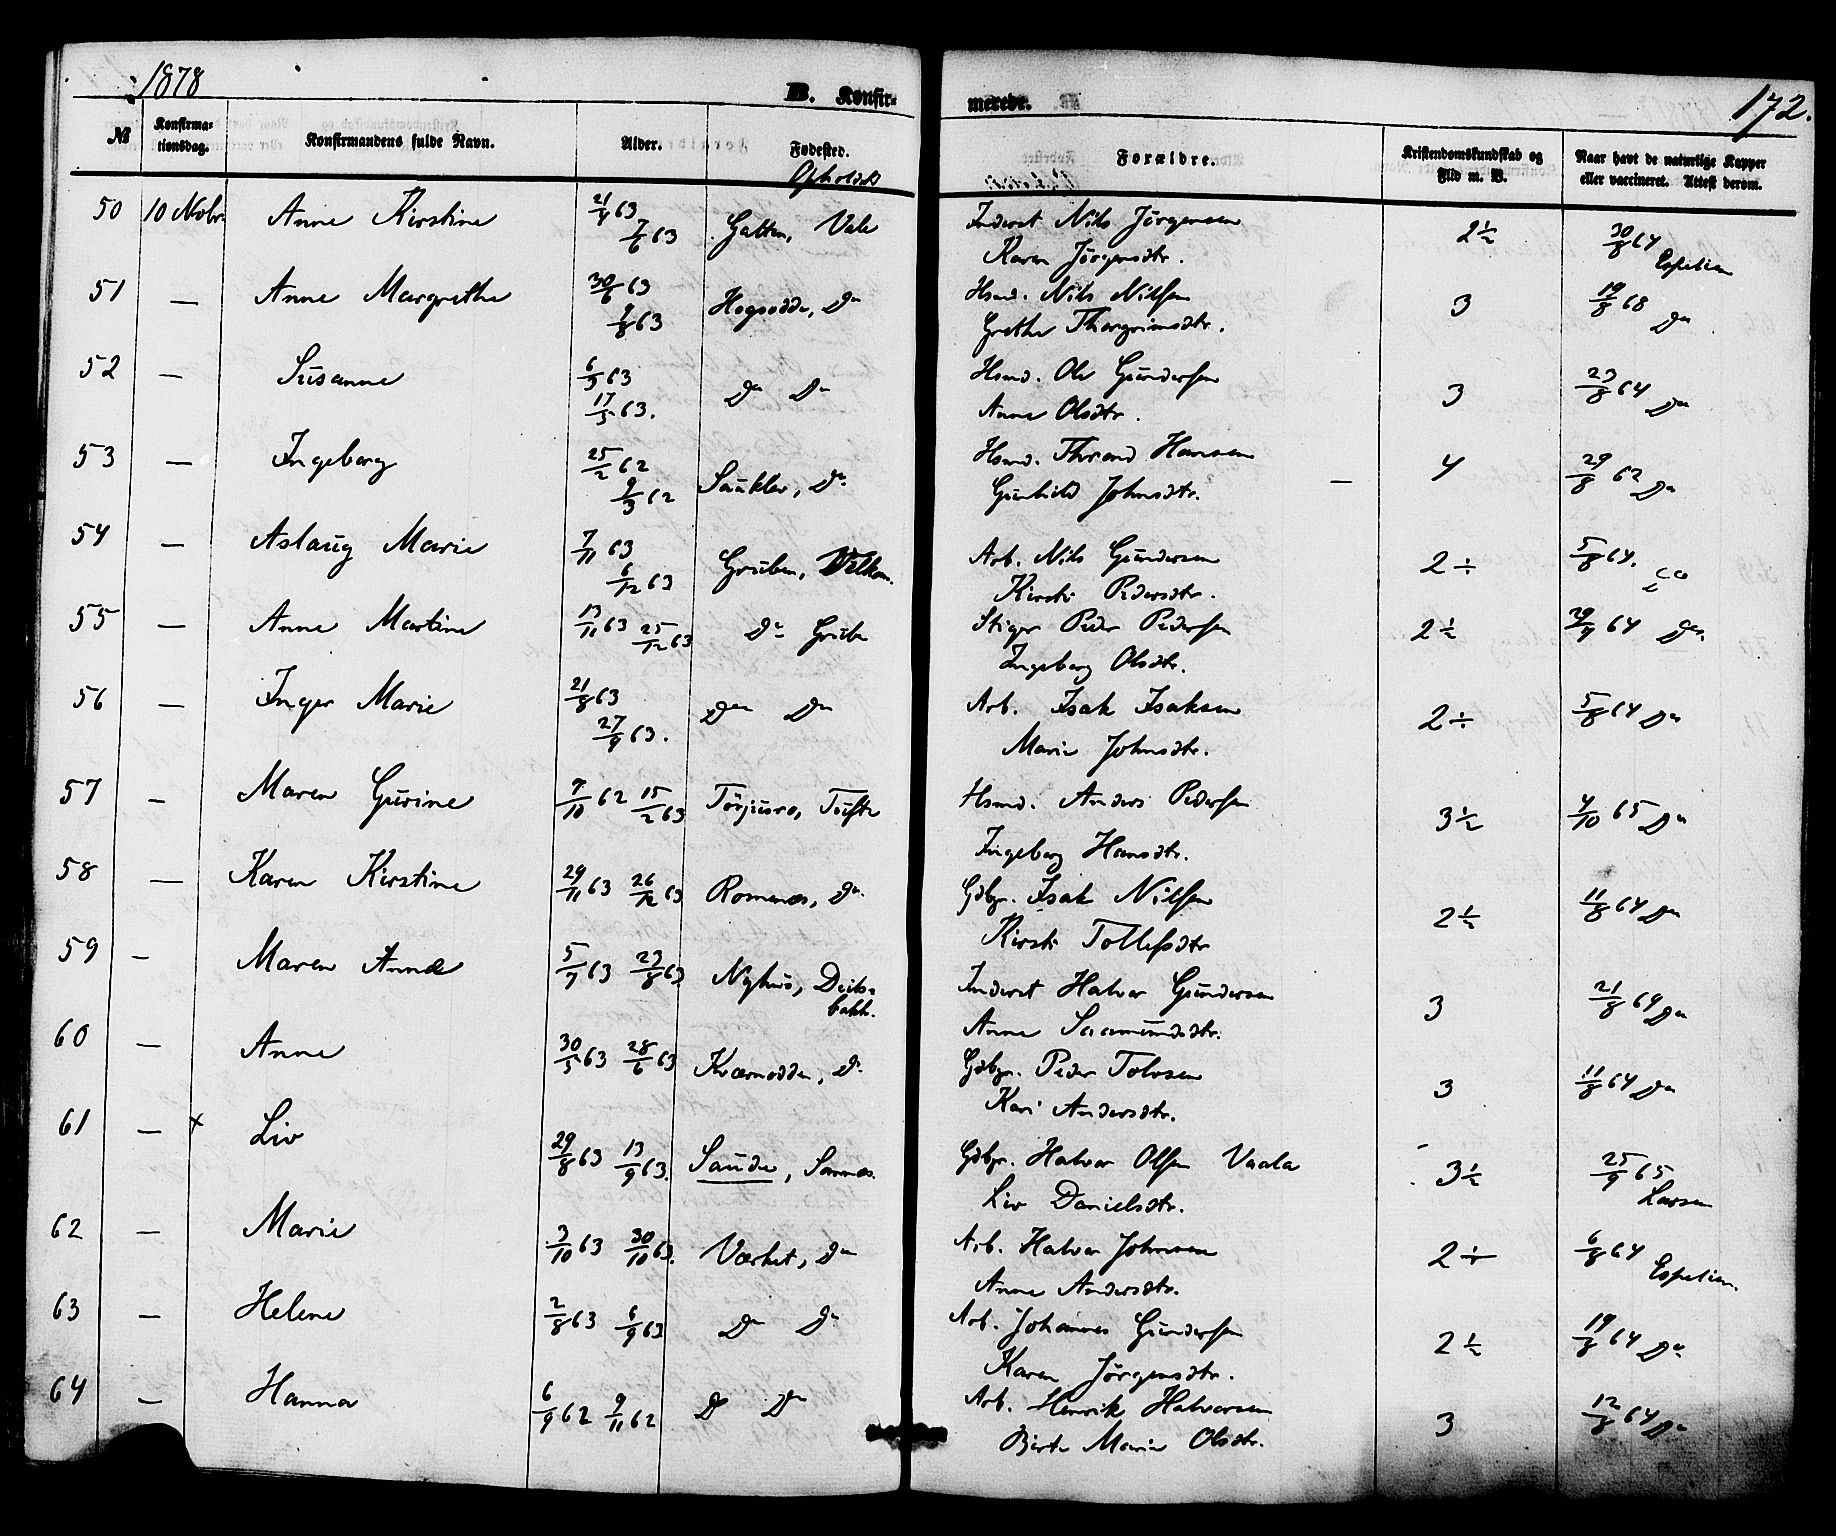 1878
B. Konfir-
merede.
172.
№
Konfirma-
tionsdag.
Konfirmandens fulde Navn.
Alder.
Fødested.
Opholdst
Forældre.
Kristendomskundskab og
Flid m. V.
Naar havt de naturlige Kopper
eller vaccineret. Attest derom.
50 10 Novbr. Anne Kirstine 21/4 63 7/6 63 Gatten, Vale Inderst Nils Jörgensen 2 1/2 30/8 64 Espelien
Karen Jörgensdtr.
51 — Anne Margrethe 30/6 63 9/8 63 Hogsodde, Do Hsmd. Nils Nilsen 3 19/8 68 Do
Grethe Thorgrimsdtr.
52 — Susanne 6/3 63 17/5 63. Do Do Hsmd. Ole Gundersen 3 23/8 64 Do
Anne Olsdtr.
53 — Ingeborg 25/2 62 9/3 62 Saukler, Do Hsmd. Thrond Hansen — 4 29/8 62 Do
Gunhild Johnsdtr.
54 — Aslaug Marie 7/11 63 6/12 63 Gruben, Arb. Nils Gundersen 2 ÷ 5/8 64.
Kirsti Pedersdtr.
55 — Anne Martine 13/11 63 25/12 63 Do Grube Stiger Peder Pedersen 2 1/2 29/9 64 Do.
Ingeborg Olsdtr.
56 — Inger Marie 21/8 63 27/9 63. Do Do Arb. Isak Isaksen 2 ÷ 5/8 64 Do
Marie Johnsdtr.
57 — Maren Gurine 7/10 62 15/2 63 Törjusro, Tufte Hsmd. Anders Pedersen 3 1/2 4/10 65 Do
Ingeborg Hansdtr.
58 — Karen Kirstine 29/11 63 26/12 63 Romenæs, Do. Gdbgr. Isak Nilsen 2 1/2 11/8 64 Do
Kirsti Tollefsdtr
59 — Maren Anne 5/7 63 23/8 63 Nyhus, Deiks-
bakk.
Inderst Halvor Gundersen 3 21/8 69 Do
Anne Saamundsdtr.
60 — Anne 30/5 63 28/6 63 Kværnodden, Do. Gdbgr. Peder Tolvsen 3 11/8 64 Do
Kari Andersdtr.
61 — × Liv 29/8 63 13/9 63. Saude, Sannæs. Gdbgr. Halvor Olsen Vaala 3 1/2 25/9 65
Larsen
Liv Danielsdtr.
62 — Marie 3/10 63 30/10 63. Værket, Do Arb. Halvor Johnsen 2 ÷ 6/8 64 Espelien.
Anne Andersdtr.
63 — Helene 2/8 63 6/9 63 Do Do Arb. Johannes Gundersen 2 1/2 19/8 64 Do
Karen Jörgensdtr.
64 — Hanna 6/9 62 9/11 62 D Do Arb. Henrik Halvorsen 3 12/8 64 Do
Birte Marie Olsdtr.